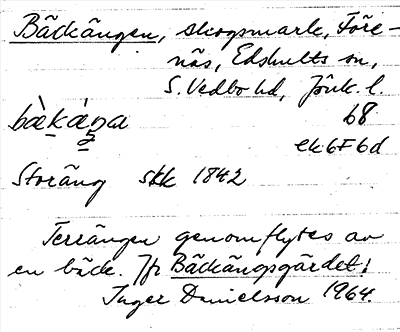 Bäckängen, skogsmark, Före-
näs, Edshults sn,
S. Vedbo hd, Jönk. l.
bæ̀kæ̀ŋa 68
ek 6F6d
Storäng skk 1842
Terrängen genomflytes av
en bäck. Jfr Bäckängsgärdet!
Inger Danielsson 1964.